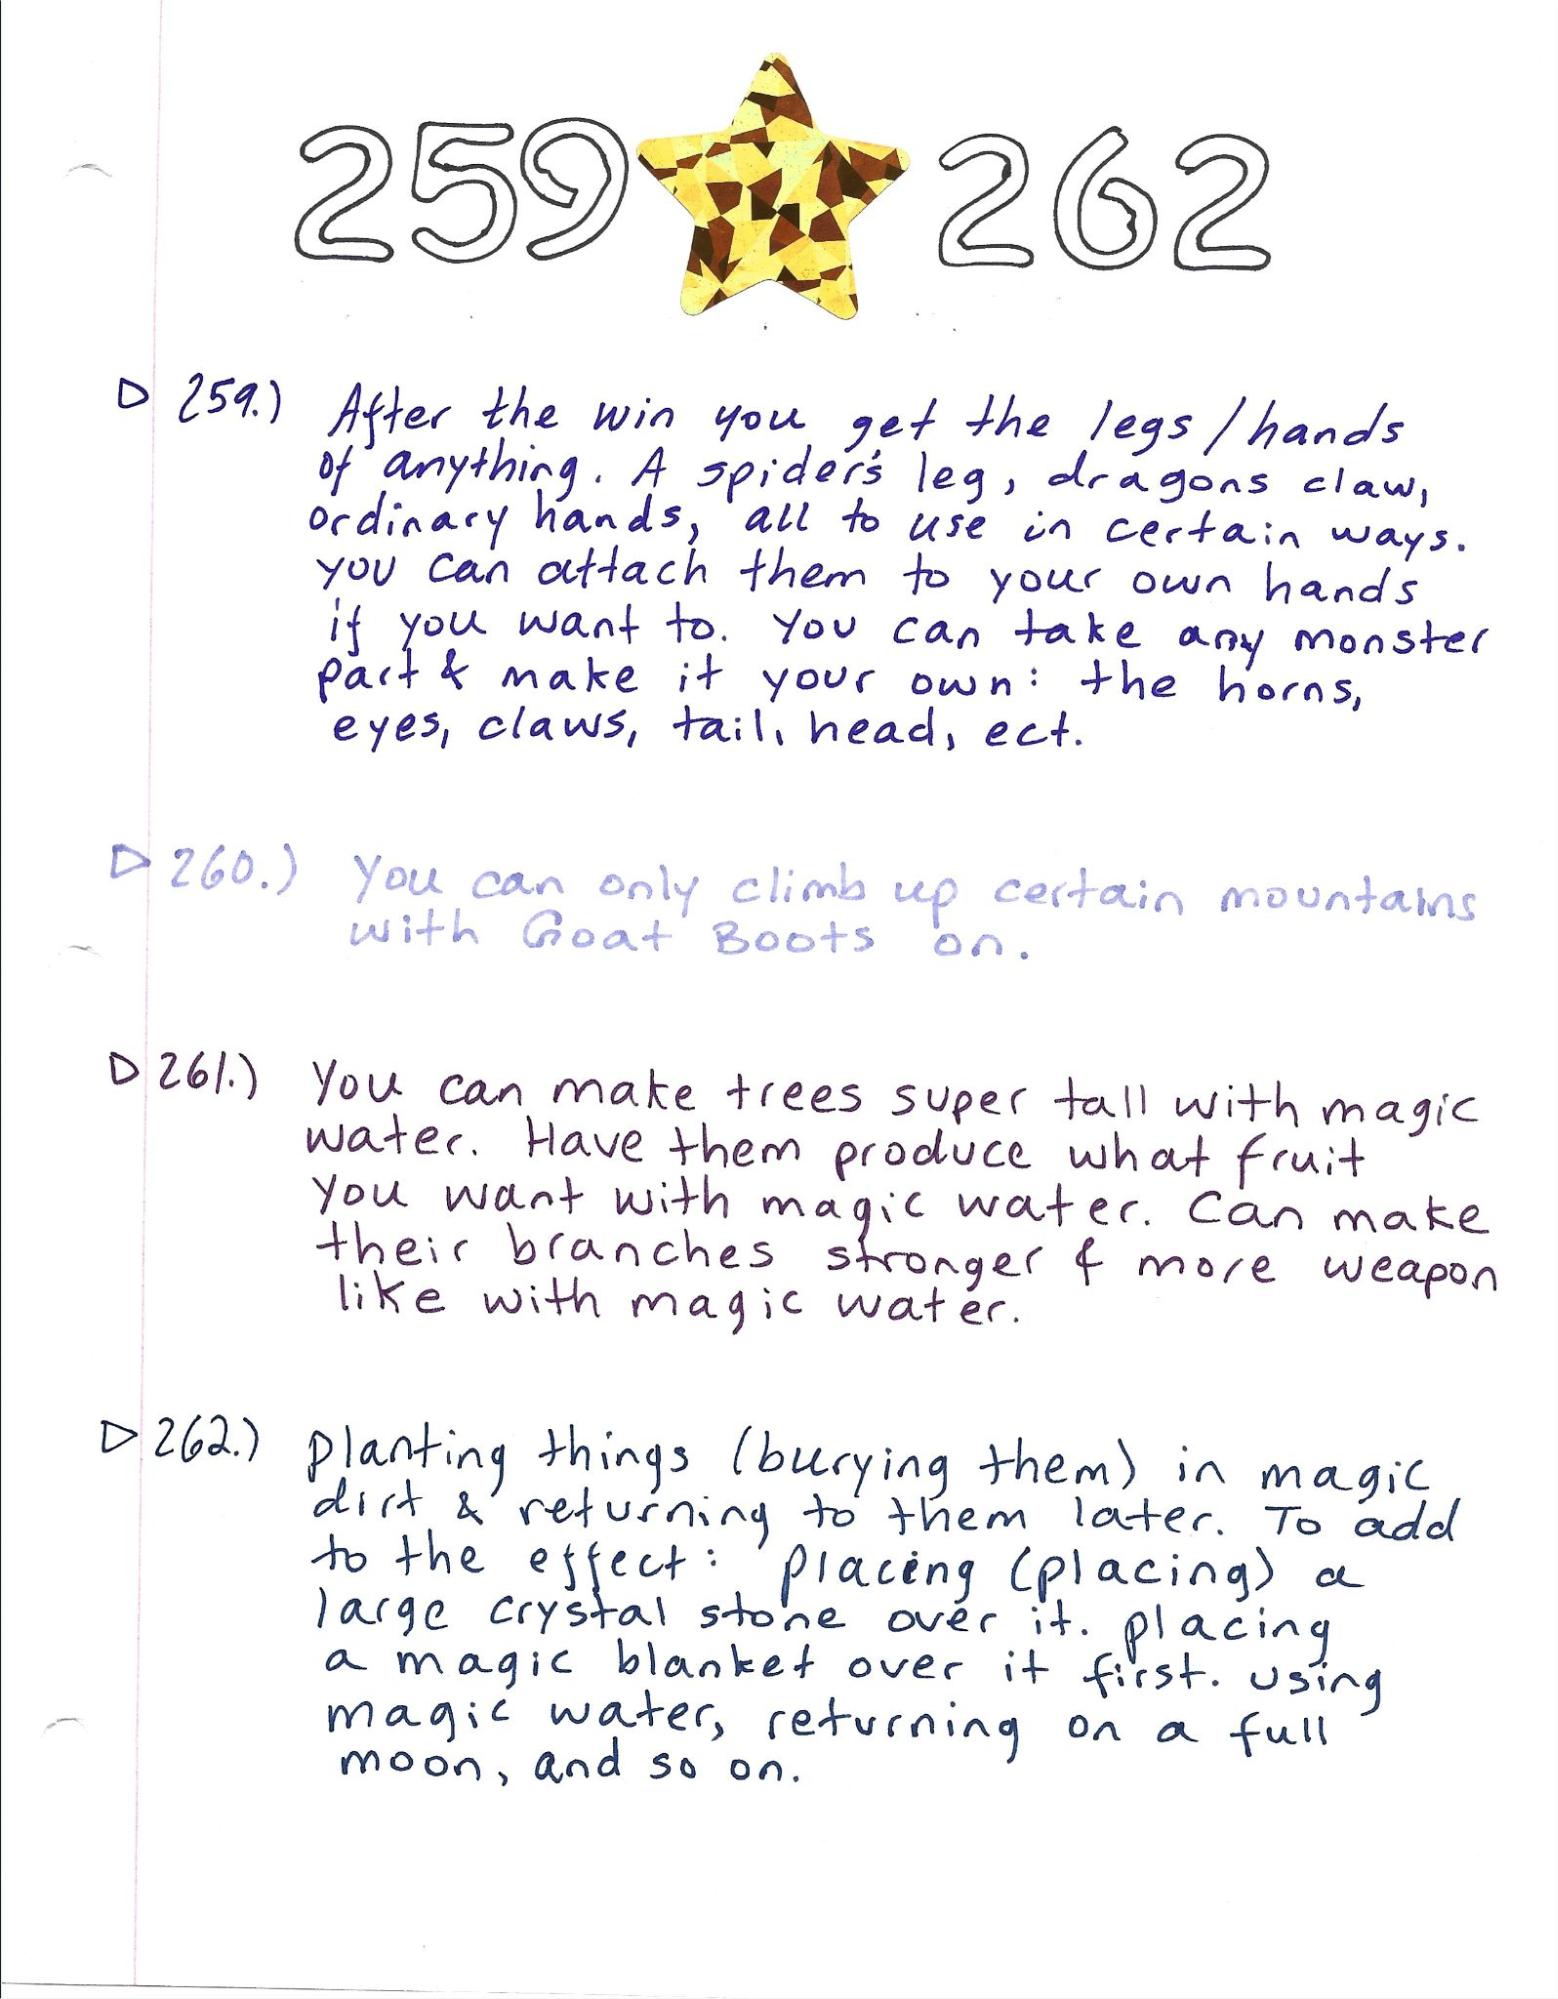 259 262
▷ 259.) After the win you get the legs/hands
of anything. A spider's leg, dragons claw,
ordinary hands, all to use in certain ways.
you can attach them to your own hands
if you want to. You can take any monster
part & make it your own: the horns,
eyes, claws, tail, head, ect.
▷ 260.) You can only climb up certain mountains
with Goat Boots on.
▷ 261.) You can make trees super tall with magic
water. Have them produce what fruit
you want with magic water. Can make
their branches stronger & more weapon
like with magic water.
▷ 262.) Planting things (burying them) in magic
dirt & returning to them later. To add
to the effect: placing (placing) a
large crystal stone over it. placing
a magic blanket over it first. using
magic water, returning on a full
moon, and so on.